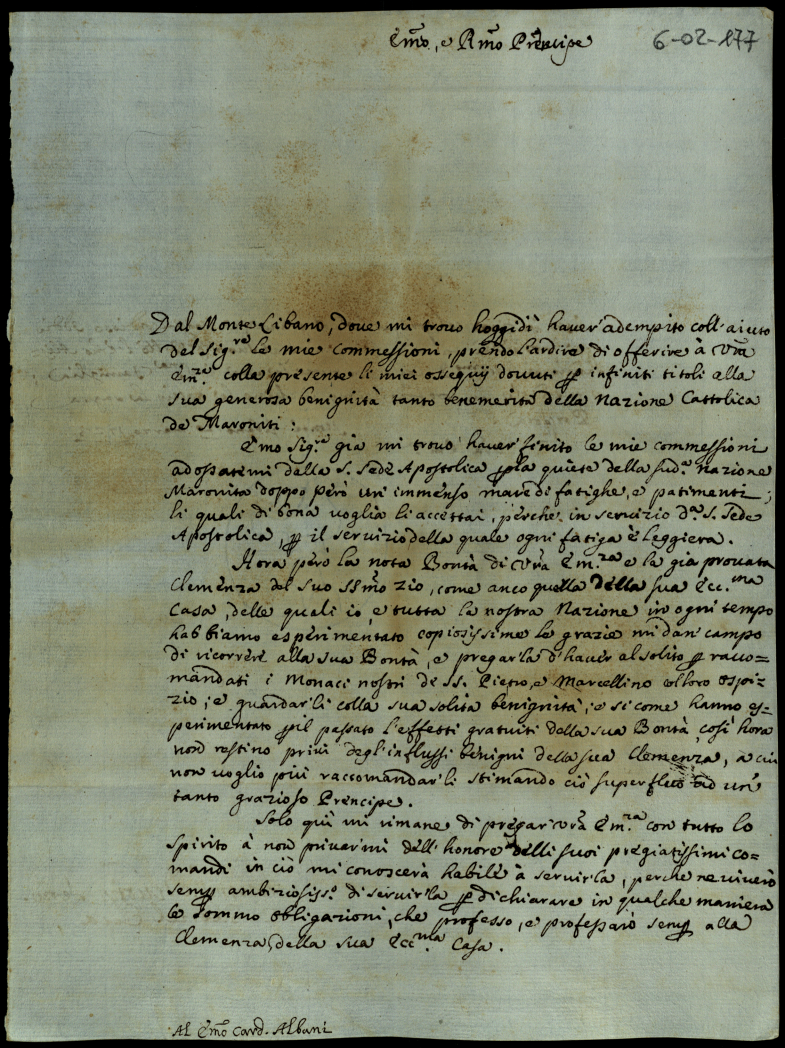 Emo, e Rmo Prencipe
6-02-177
Dal Monte Libano, dove mi trovo hoggidì haver adempito coll'aiuto
del Sig.re le mie commessioni, prendo l'ardire di offerire à Vra
Em.za colla presente li miei ossequij dovuti p infiniti titoli alla
sua generosa benignità tanto benemerita della Nazione Cattolica
de Maroniti:
Emo Sig.re già mi trovo haver finito le mie commessioni
adossatemi dalla S. Sede Apostolica p la quiete della sud.a nazione
Maronita doppo però un immenso mare di fatighe, e patimenti;
li quali di bona voglia li accettai, perche in servizio d.a S. Sede
Apostolica, p il servizio della quale ogni fatiga è leggiera.
Hora però la nota Bontà di Vra Em.za e la già provata
Clemenza del suo SSmo zio, come anco quella della sua Ecc.ma
Casa, delle quali io, e tutta la nostra Nazione in ogni tempo
habbiamo esperimentato copiosissime le grazie mi dan campo
di ricorrere alla sua Bontà, e pregarla d'haver al solito p racco=
mandati i Monaci nostri de SS. Pietro, e Marcellino col loro ospi=
zio, e guardarli colla sua solita benignità, e si come hanno es=
perimentato p il passato l'effetti gratuiti della sua Bontà, così hora
non restino privi degl'influssi benigni della sua Clemenza, a cui
non voglio più raccomandarli stimando ciò superfluo ad un
tanto grazioso Prencipe.
Solo quì mi rimane di pregar Vra Em.za con tutto lo
spirito à non privarmi dell'honore delli suoi pregiatissimi co=
mandi in ciò mi conoscerà habile à servirla, perche ne viverò
semp ambiziosiss.o di servirla p dichiarare in qualche maniera
le somme obligazioni, che professo, e professarò semp alla
Clemenza, della sua Ecc.ma Casa.
Al Emo Card. Albani